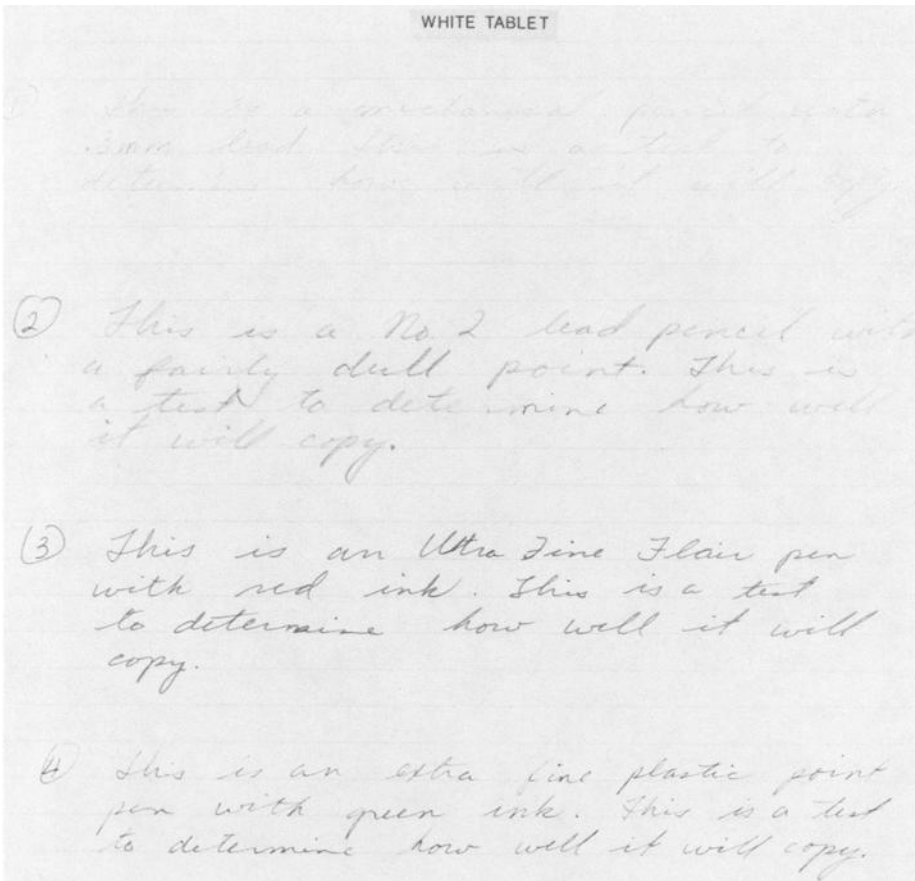 WHITE TABLET
This is a mechanical pencil with
.5mm lead this is a test to
determine how well it will copy
② This is a No. 2 lead pencil with
a fairly dull point. This is
a test to determine how well
it will copy.
③ This is an Ultra Fine Flair pen
with red ink. This is a test
to determine how well it will
copy.
④ This is an extra fine plastic point
pen with green ink. This is a test
to determine how well it will copy.